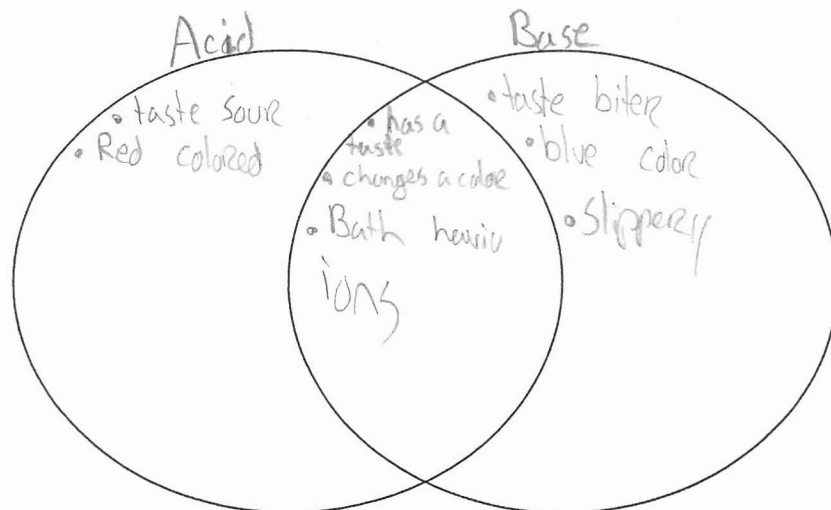 Acid
• taste sour
• Red colored
• has a
taste
• changes a color
• Bath
ions
Base
• taste biter
• blue color
• Slippery